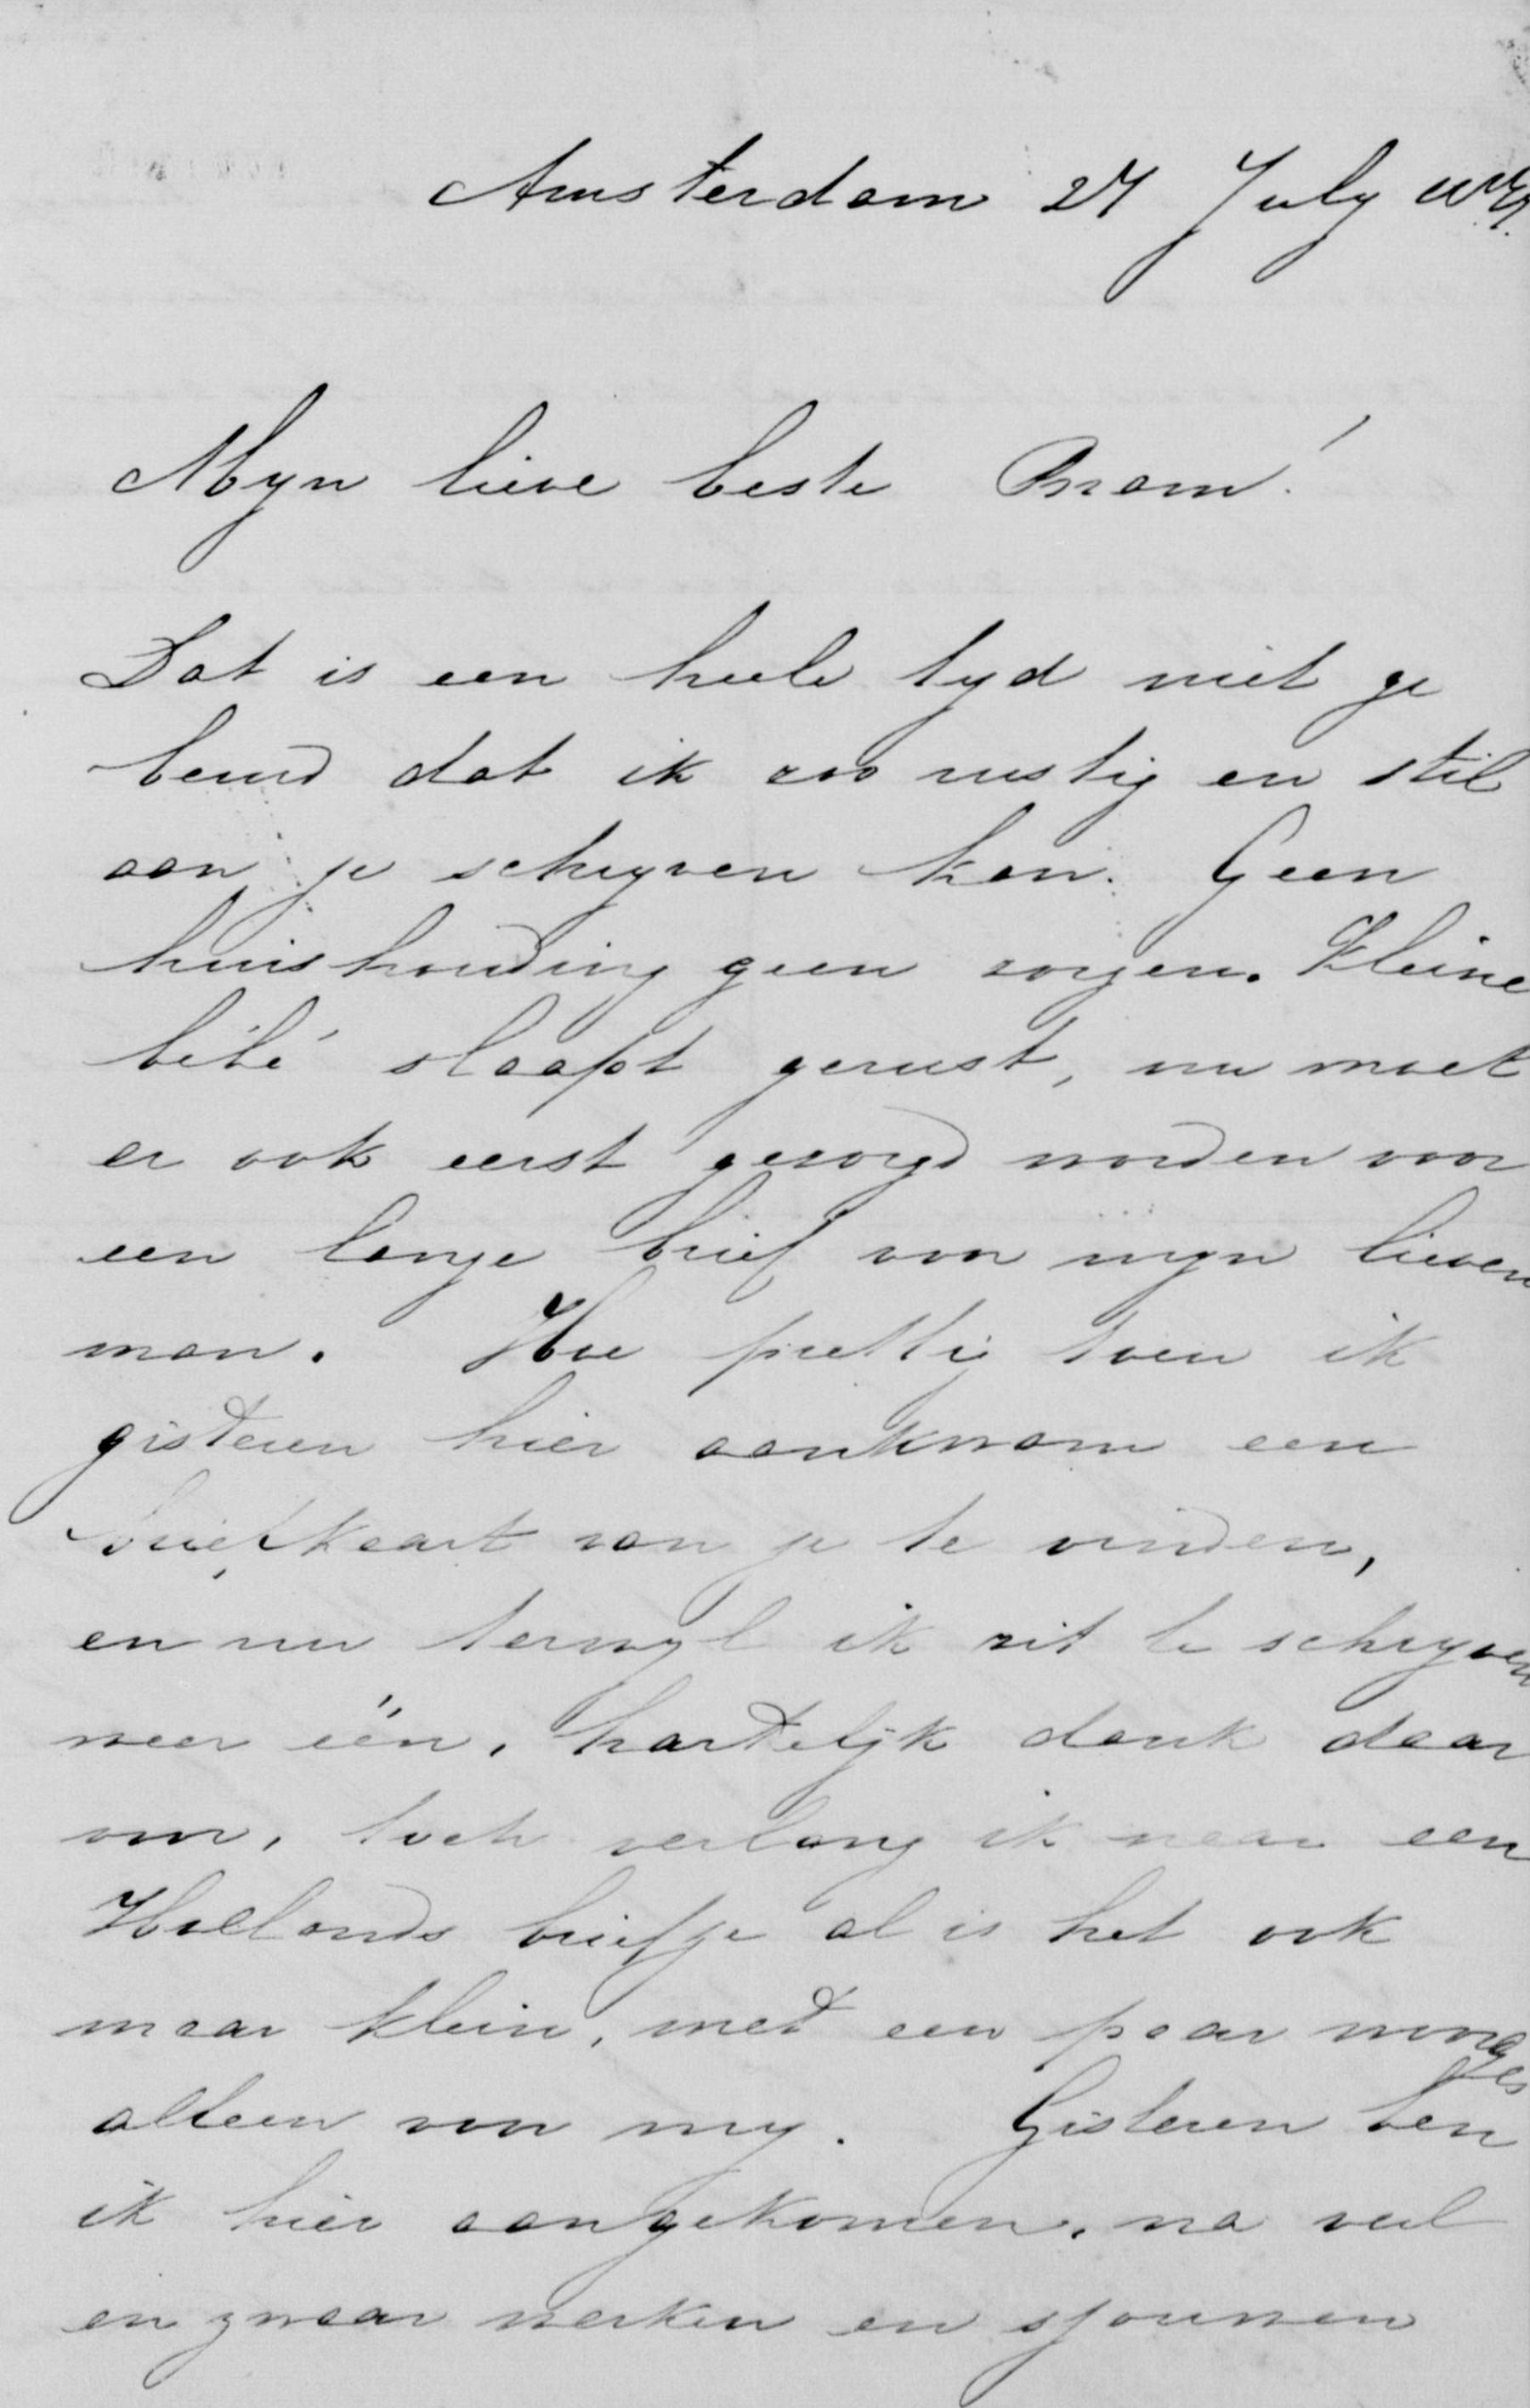 Amsterdam 27 July
Myn lieve beste Bram!
Dat is een heele tyd niet ge
beurd dat ik zoo rustig en stil
aan je schryven kan. Geen
huishouding geen zorgen. Kleine
bébé slaapt gerust, nu moet
er ook eerst gezorgd worden voor
een lange brief voor myn lieven
man. Hoe prettig toen ik
gisteren hier aankwam een
briefkaart van je te vinden,
en nu terwyl ik zit te schryven
weer één, hartelijk dank daar
voor, toch verlang ik naar een
Hollands briefje al is het ook
maar klein, met een paar woordjes
alleen voor my. Gisteren ben
ik hier aangekomen, na veel
en zwaar werken en sjouwen